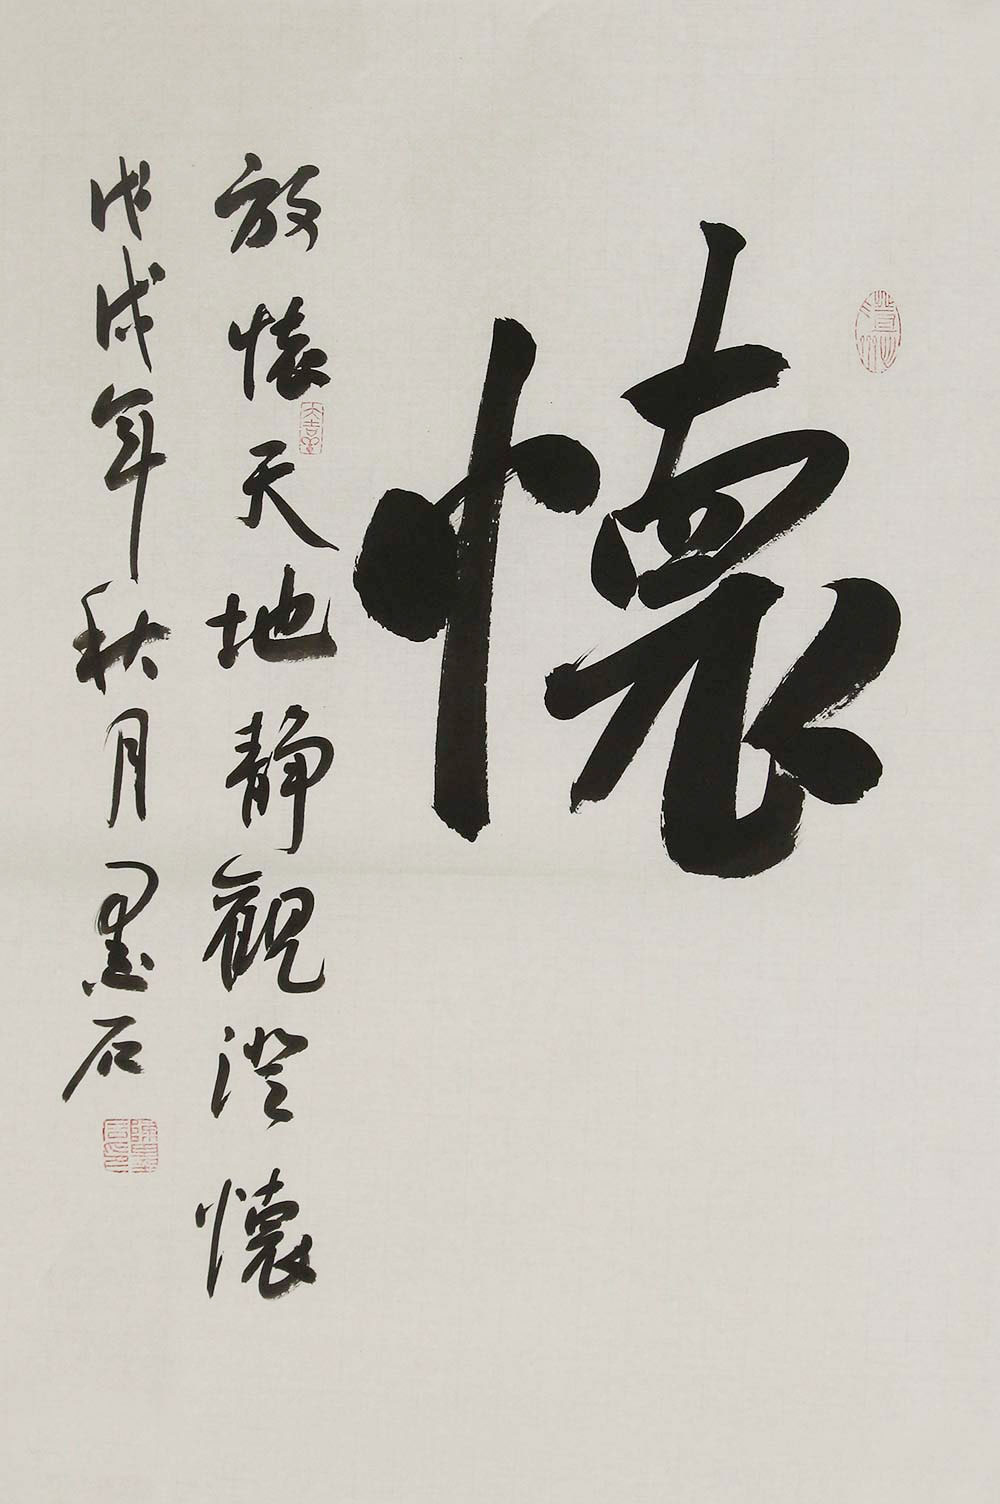 懷
放懷天地靜觀澄懷
戊戌年秋月墨石